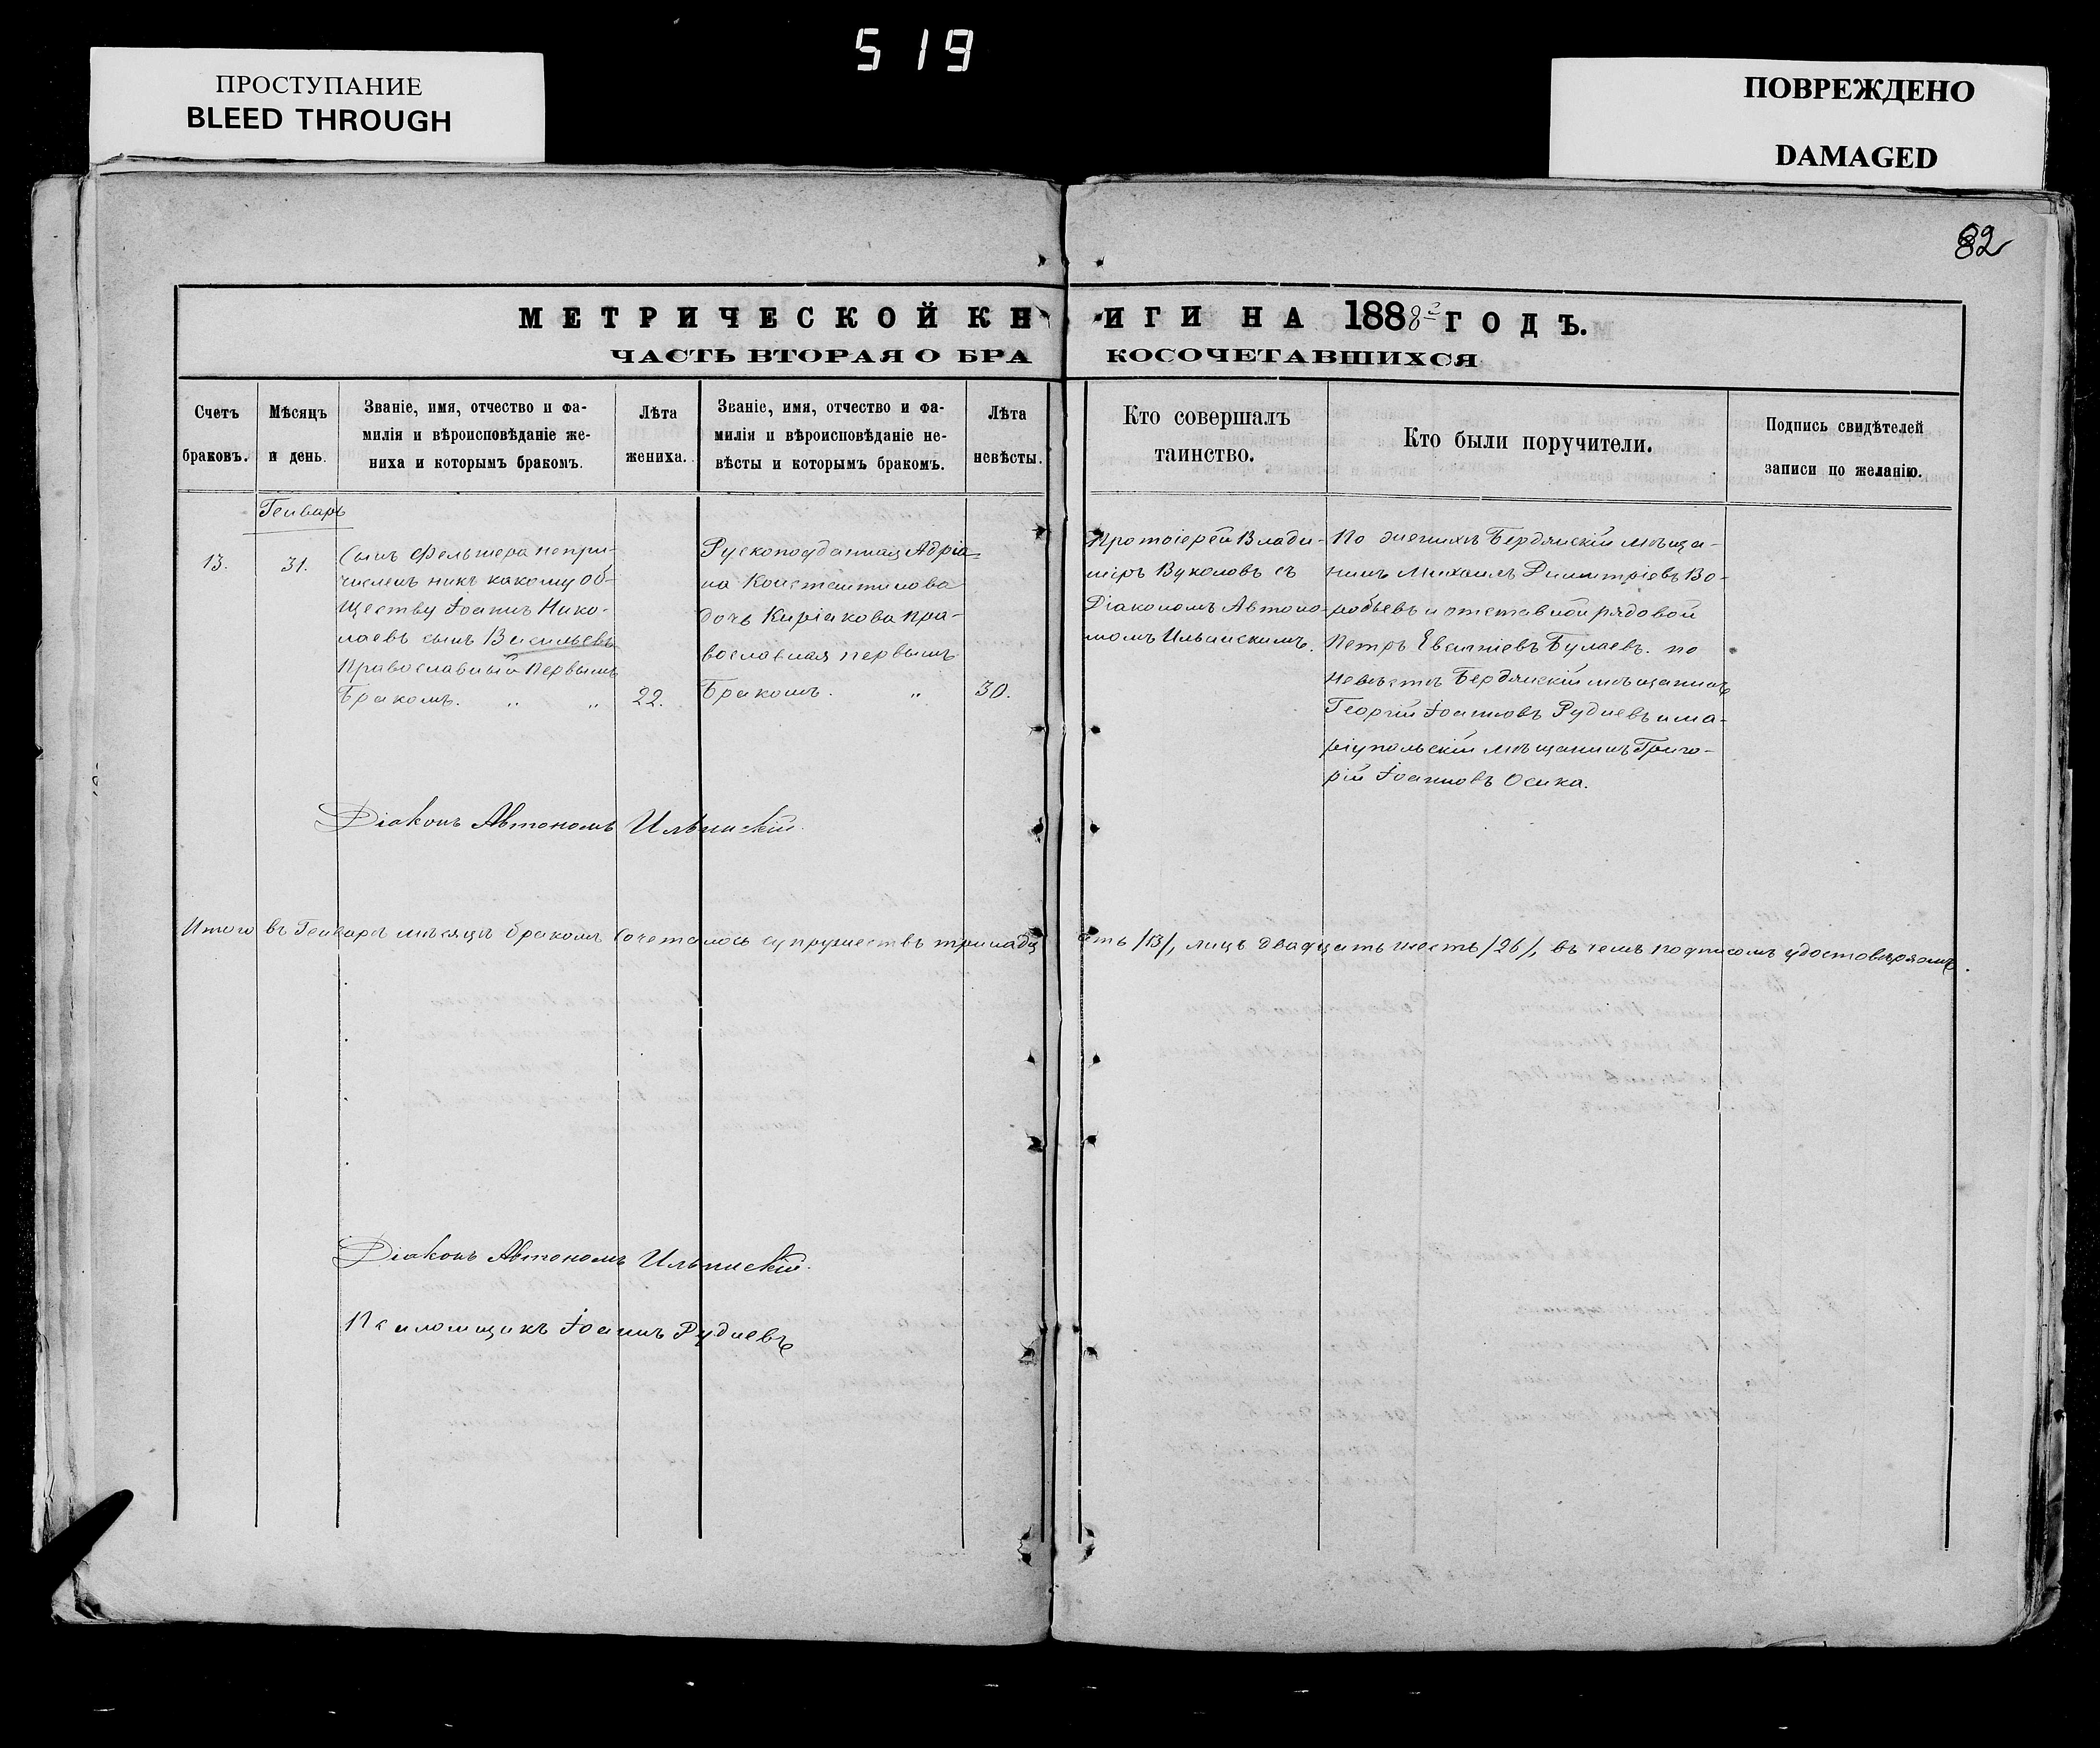 519
ПРОСТУПАНИЕ
BLEED THROUGH
ПОВРЕЖДЕНО
DAMAGED
82
МЕТРИЧЕСКОЙ КНИГИ НА 1888 ГОДЪ.
ЧАСТЬ ВТОРАЯ О БРАКОСОЧЕТАВШИХСЯ
Счетъ
браковъ.
Мѣсяцъ
и день.
Званіе, имя, отчество и фа-
милія и вѣроисповѣданіе же-
ниха и которымъ бракомъ.
Лѣта
жениха.
Званіе, имя, отчество и фа-
милія и вѣроисповѣданіе не-
вѣсты и которымъ бракомъ.
Лѣта
невѣсты.
Кто совершалъ
таинство.
Кто были поручители.
Подпись свидѣтелей
записи по желанію.
Генварь
13.
31.
Сынъ Фельшера непри-
численъ никъ какому об-
ществу Іоаннъ Нико-
лаевъ сынъ Васильевъ
Православный первымъ
Бракомъ. " "
22.
Рускоподданная Адріа-
на Константинова
дочь Киріакова пра-
вославная первымъ
Бракомъ. "
30.
Протоіерей Влади-
міръ Вуколовъ съ
Діакономъ Автоно-
момъ Ильинскимъ.
По женихѣ Бердянскій мѣща-
нинъ Михаилъ Димитріевъ Во-
робьевъ и отставной рядовой
Петръ Булаевъ. по
Невѣстѣ Бердянскій мѣщанинъ
Георгій Іоанновъ Рудиевъ и ма-
ріупольскій мѣщанинъ Григо-
рій Іоанновъ Осика.
Діаконъ Автономъ Ильинскій.
Итого въ Генварѣ мѣсяцѣ бракомъ сочеталось супружествъ тринадцать /13/, лицъ двадцать шесть /26/, въ чемъ подписомъ удостовѣряемъ.
Діаконъ Автономъ Ильинскій.
Псаломщикъ Іоаннъ Рудиевъ